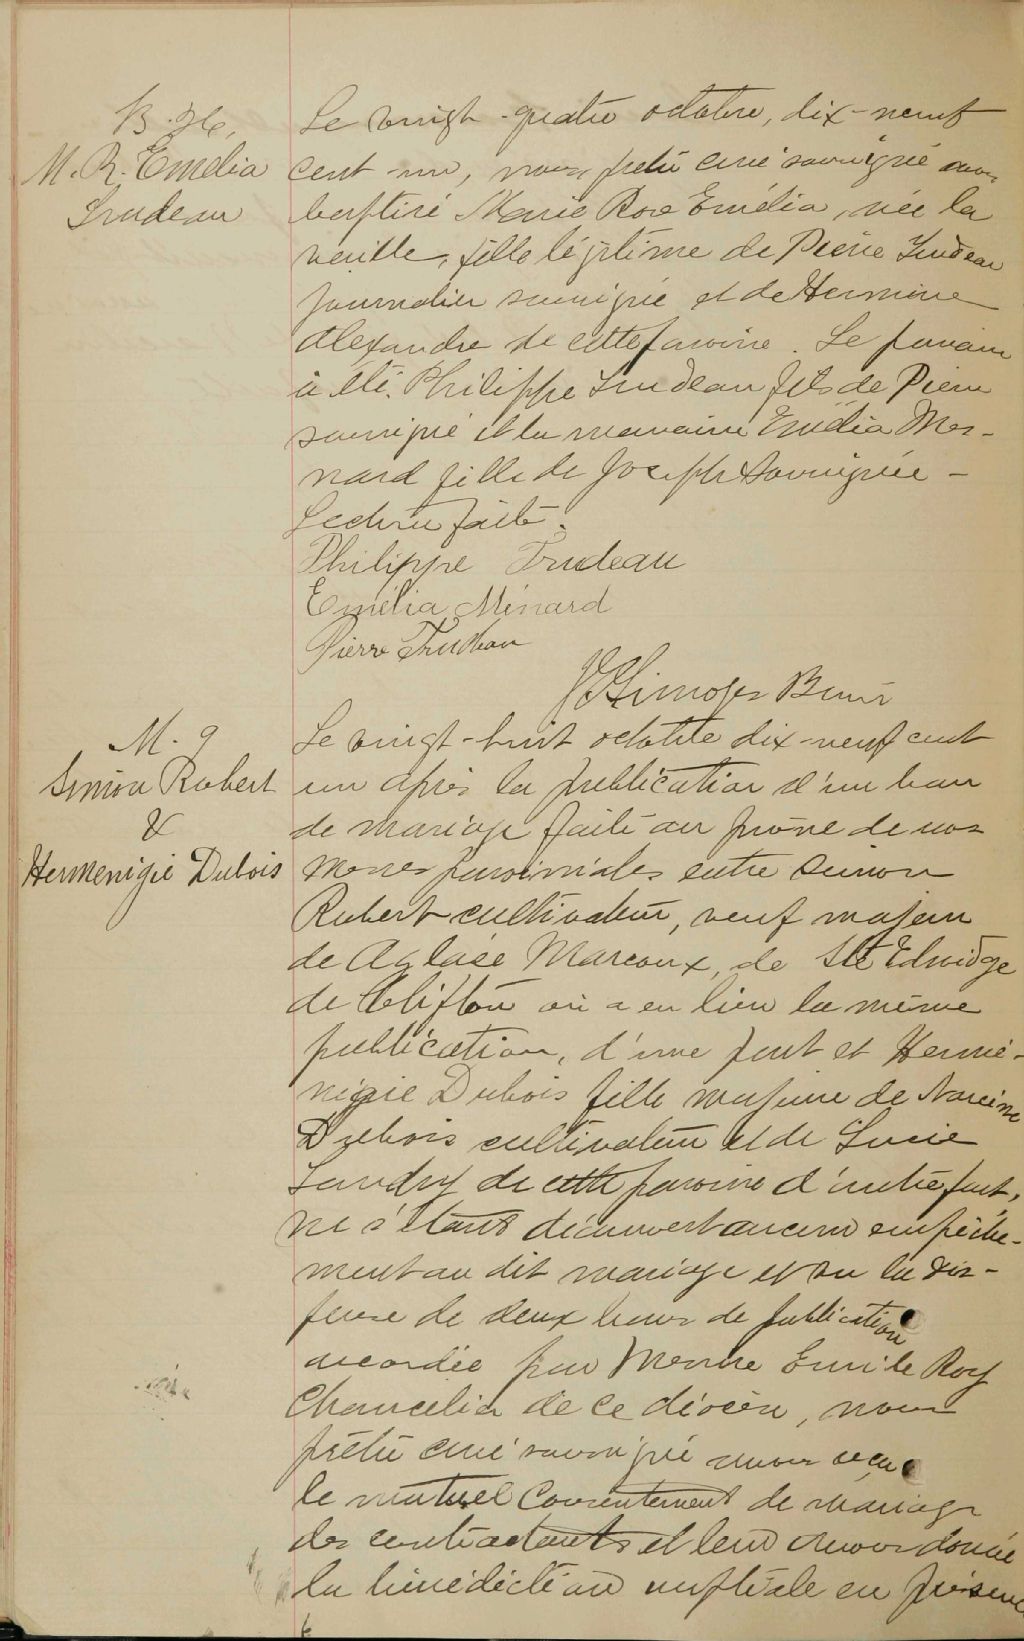 B. 26,
M. R. Emélia
Trudeau
Le vingt-quatre octobre, dix-neuf
cent-un, nous, prêtre curé soussigné avons
baptisé Marie Rose Emélia, née la
veille, fille légitime de Pierre Trudeau
journalier soussigné et de Hermine
Alexandre de cette paroisse. Le parrain
a été Philippe Trudeau fils de Pierre
soussigné et la marraine Emélia Mes-
nard fille de Joseph soussignée -
Lecture faite.
Philippe Trudeau
Emélia Ménard
Pierre Trudeau
Limoges
M. 9
Simon Robert
&
Hermenigie Dubois
Le vingt-huit octobre dix-neuf cent
un après la publication d'un ban
de mariage faite au prône de nos
messes paroissiales entre Simon
Robert cultivateur, veuf majeur
de Aglaée Marcoux, de Ste Edwidge
de Clifton où a eu lieu la même
publication, d'une part et Hermé-
nigie Dubois fille majeure de Narcisse
Dubois cultivateur et de Lucie
Landry de cette paroisse d'autre part,
ne s'étant découvert aucun empêche-
ment au dit mariage et vu la dis-
pense de deux bans de publication
accordée par Messire Emile Roy
Chancelier de ce diocèse, nous
prêtre curé soussigné avons reçu
le mutuel consentement de mariage
des contractants et leur avons donné
la bénédiction nuptiale en présence